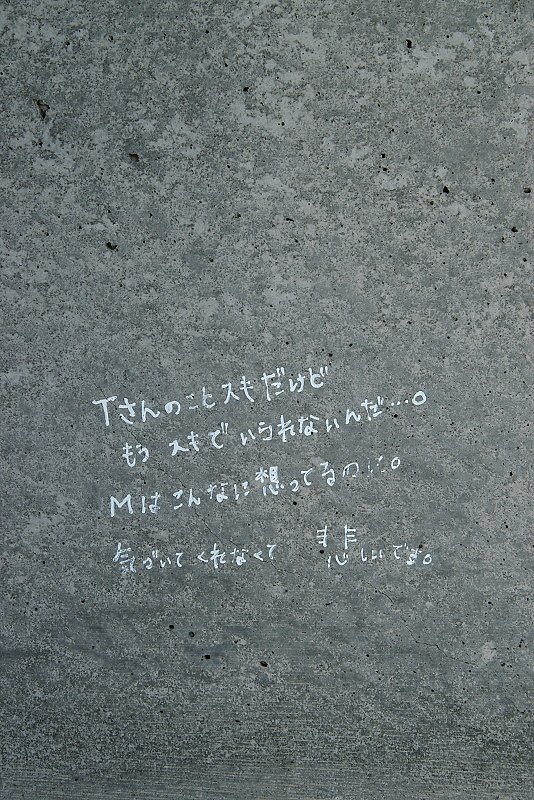 Tさんのことスキだけど
もう スキで いられないんだ…。
Mはこんなに想ってるのに。
気づいてくれなくて 悲しいです。